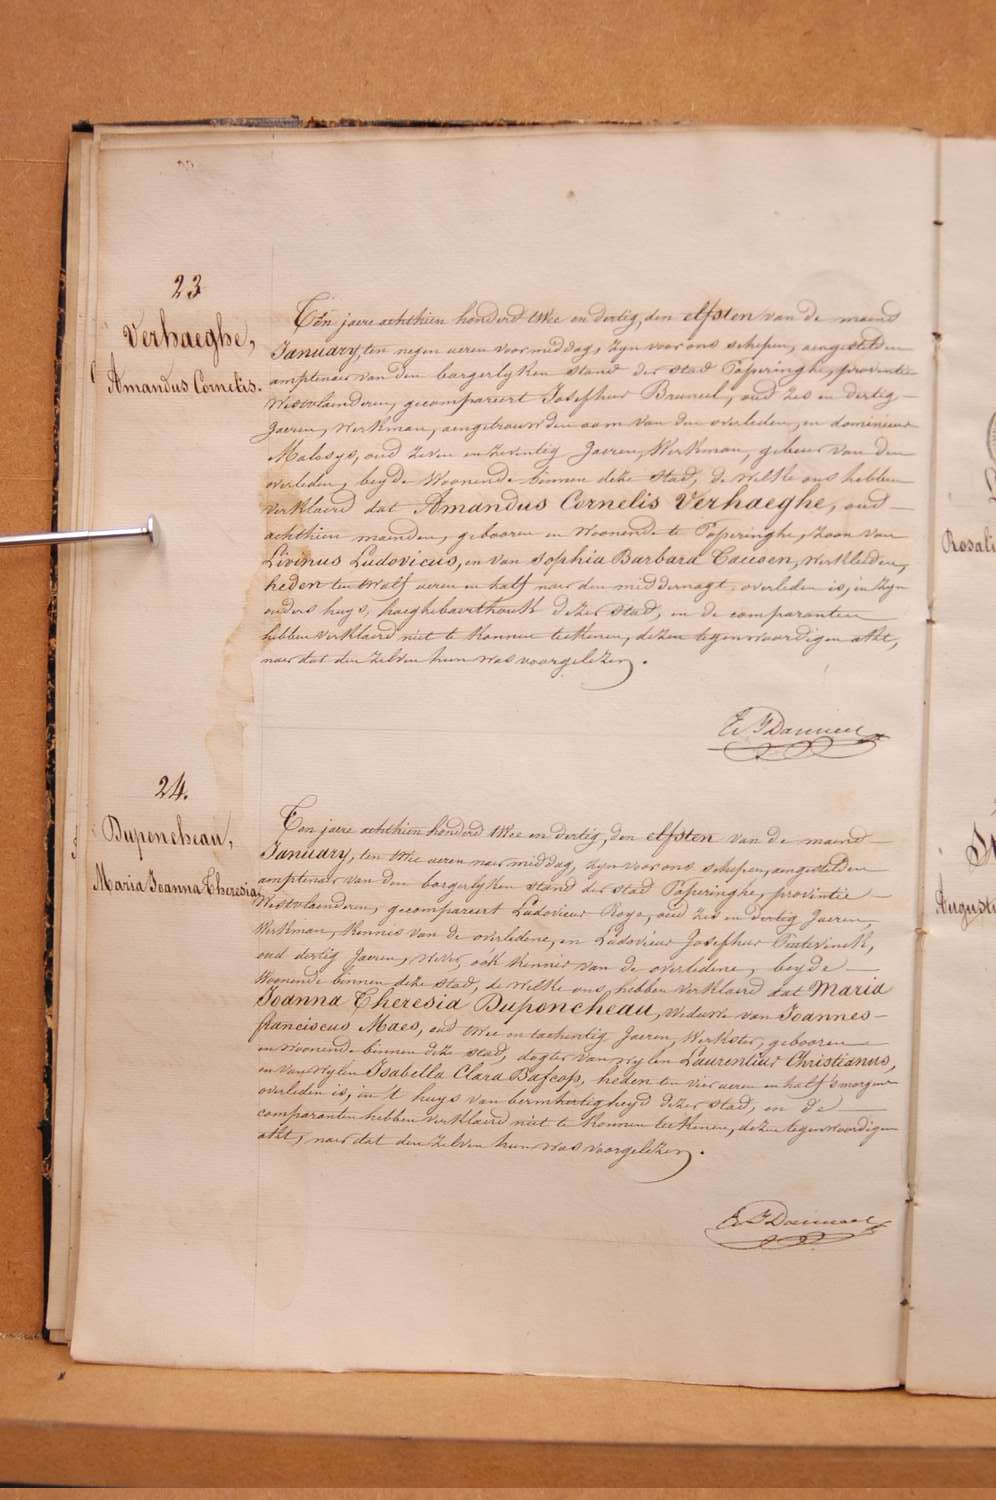 23
Verhaeghe,
Amandus Cornelis.
Ten jaere achthien honderd twee en dertig, den elfsten van de maend
January, ten negen ueren voormiddag, zyn voor ons schepen, aengestelden
amptenaer van den borgerlyken stand der stad Poperinghe, provintie
Westvlaenderen, gecompareert Josephus Bruneel, oud zes en dertig
Jaeren, Werkman, aengetrouwden oom van den overleden, en dominicus
Malesys, oud zeven en zeventig Jaeren, Werkman, gebuer van den
overleden, beyde Woonende binnen deze stad, de welke ons hebben
verklaerd dat Amandus Cornelis Verhaeghe, oud
achthien maenden, gebooren en woonende te Poperinghe, zoon van
Livinus Ludovicus, en van Sophia Barbara Caeesen, Werklieden,
heden ten twalf ueren en half naer den middernagt, overleden is, in zyn
ouders huys, haeghebaerthoek dezer stad, en de comparanten
hebben verklaerd niet te konnen teekenen, dezen tegenwoordigen akt,
naer dat den zelven hun was voorgelezen.
24.
Duponcheau,
Maria Joanna Theresia
Ten jaere achthien honderd twee en dertig, den elfsten van de maend
January, ten twee ueren naer middag, zyn voor ons schepen, aengestelden
amptenaer van den borgerlyken stand der stad Poperinghe, provintie
Westvlaenderen, gecompareert Ludovicus Roye, oud zes en dertig Jaeren,
Werkman, kennis van de overledene, en Ludovicus Josephus
oud dertig Jaeren, wever, ook kennis van de overledene, beyde
Woonende binnen deze stad, de welke ons, hebben verklaerd dat Maria
Joanna Theresia Duponcheau, Weduwe van Joannes
franciscus Maes, oud twee en tachentig Jaeren, Werkster, gebooren
en woonende binnen deze stad, dogter van wylen Laurentius Christianus,
en van wylen Isabella Clara Bafcop, heden ten vier ueren en half 's morgens
overleden is, in 't huys van bermhertigheyd dezer stad, en de
comparanten hebben verklaerd niet te konnen teekenen, dezen tegenwoordigen
akt, naer dat den zelven hun was voorgelezen.
Rosali
Augusti